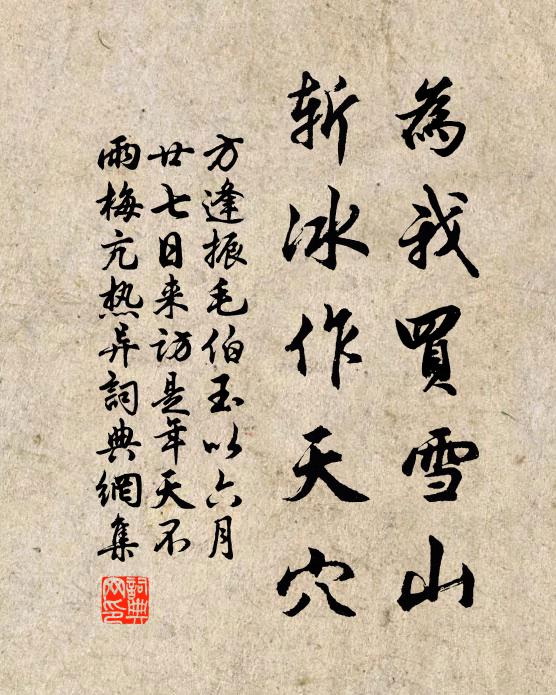 為我買雪山
斬冰作天穴
方逢振毛伯玉以六月
廿七日来訪是年天不
雨梅亢热异詞典網集
詞典網印